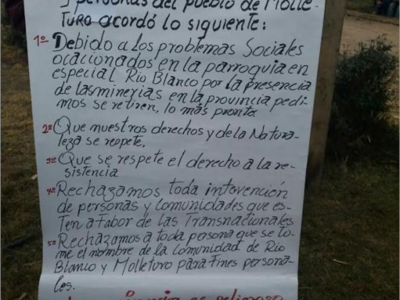 personas del pueblo de Molle-
TURO acordó lo siguiente:
1º Debido a los problemas Sociales
ocacionados en la parroquia en
especial Río Blanco por la presencia
de las minerias en la provincia pedi-
mos se retiren, lo mas pronto
2º Que nuestros derechos y de la Natura-
leza se respete.
3º Que se respete el derecho a la re-
sistencia
4º Rechazamos toda intovención
de personas y comunidades que es-
Ten a Fabor de las Transnacionales
5º Rechazamos a toda persona que se to-
me el nombre de la Comunidad de Río
Blanco y Molleturo para Fines persona-
les.
es peligroso